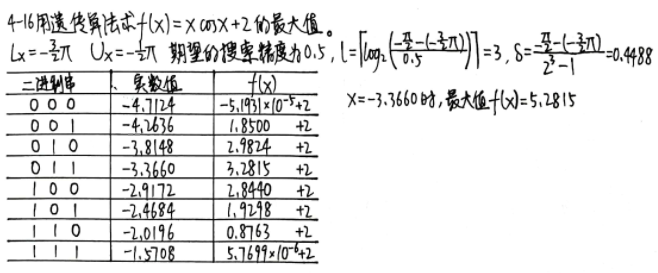 4-16用遗传算法求f(x)=x cosx+2的最大值。
Lx=-3/2π Ux=-1/2π 期望的搜索精度为0.5, l=⌈log₂((-π/2-(-3/2π))/0.5)⌉=3, δ=(-π/2-(-3/2π))/(2³-1)=0.4488
x=-3.3660时,最大值f(x)=5.2815
二进制串 实数值 f(x)
0 0 0 -4.7124 -5.1931×10⁻⁵+2
0 0 1 -4.2636 1.8500 +2
0 1 0 -3.8148 2.9824 +2
0 1 1 -3.3660 3.2815 +2
1 0 0 -2.9172 2.8440 +2
1 0 1 -2.4684 1.9298 +2
1 1 0 -2.0196 0.8763 +2
1 1 1 -1.5708 5.7699×10⁻⁶+2